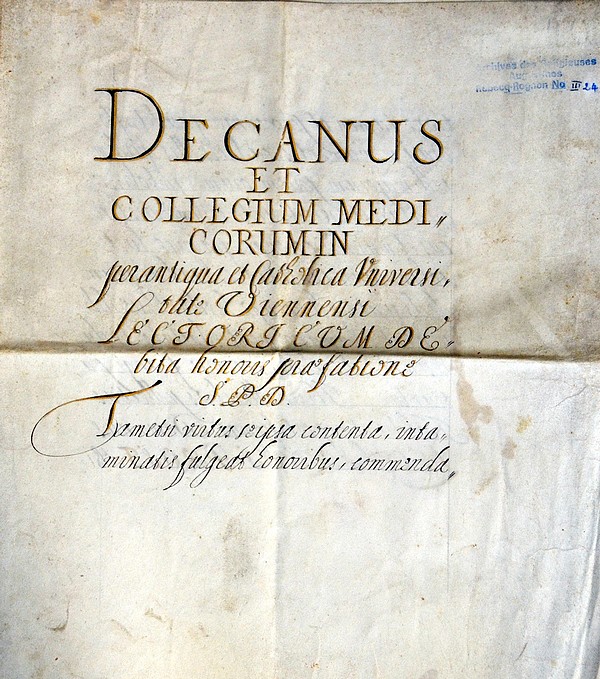 Archives des Religieuses
Augustines
Rebecq-Rognon No III 24
DECANUS
ET
COLLEGIUM MEDI„
CORUM IN
perantiqua et Catholica Universi„
tate Viennensi
LECTORI CUM DE„
bita honoris præfatione
S. P. D.
Tametsi virtus seipsa contenta, inta„
minatis fulgeat honoribus, commenda„